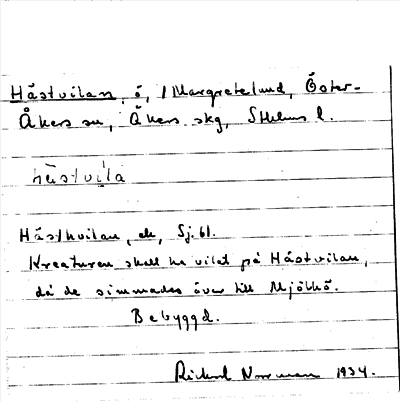 Hästvilan, ö, / Margretelund, Öster-
Åkers sn, Åkers skg, Sthlms l.
hästvila
Hästhvilan, ek, Sj.bl.
Kreaturen skall ha vilat på Hästvilan,
då de simmades över till Mjölkö.
Bebyggd.
Rickard Norrman 1934.